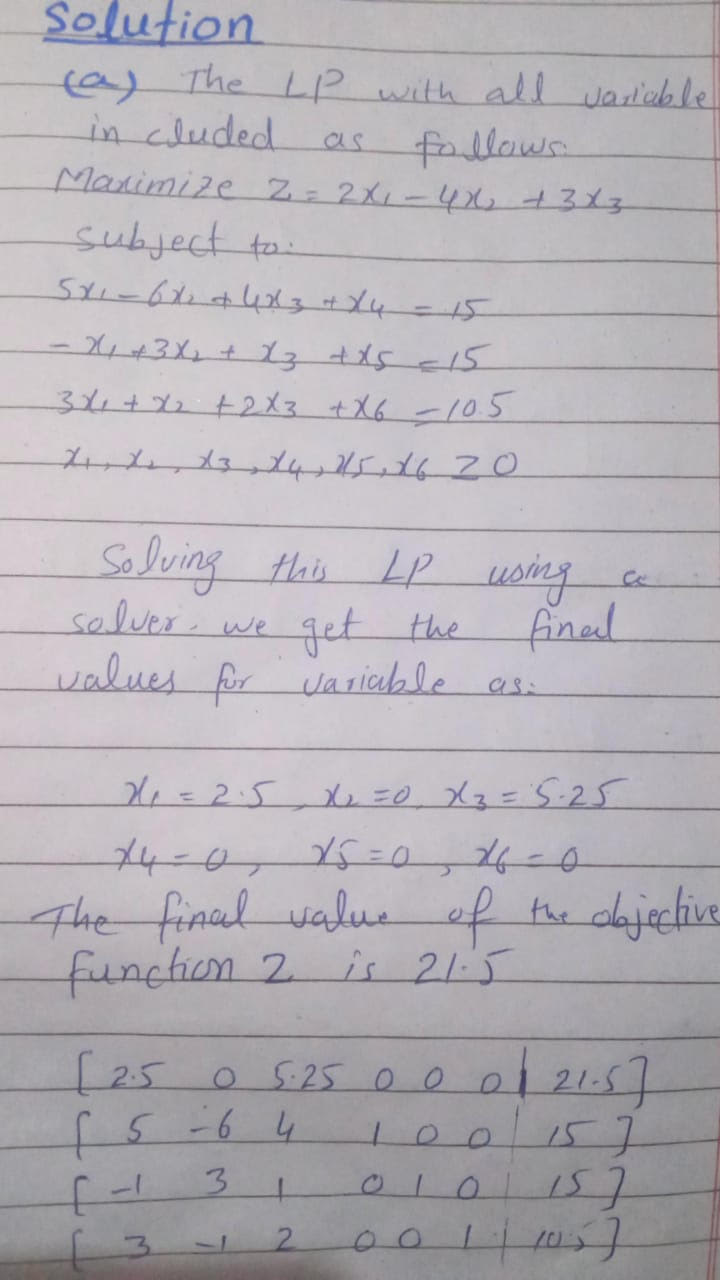 Solution
(a) The LP with all variable
in cluded as follows:
Maximize Z = 2x₁ - 4x₂ + 3x₃
subject to:
5x₁ - 6x₂ + 4x₃ + x₄ = 15
- x₁ + 3x₂ + x₃ + x₅ = 15
3x₁ + x₂ + 2x₃ + x₆ = 10.5
x₁, x₂, x₃, x₄, x₅, x₆ ≥ 0
Solving this LP using a
solver. we get the final
values for variable as:
x₁ = 2.5, x₂ = 0, x₃ = 5.25
x₄ = 0, x₅ = 0, x₆ = 0
The final value of the objective
function Z is 21.5
[ 2.5 0 5.25 0 0 0 | 21.5 ]
[ 5 -6 4 1 0 0 | 15 ]
[ -1 3 1 0 1 0 | 15 ]
[ 3 -1 2 0 0 1 | 10.5 ]